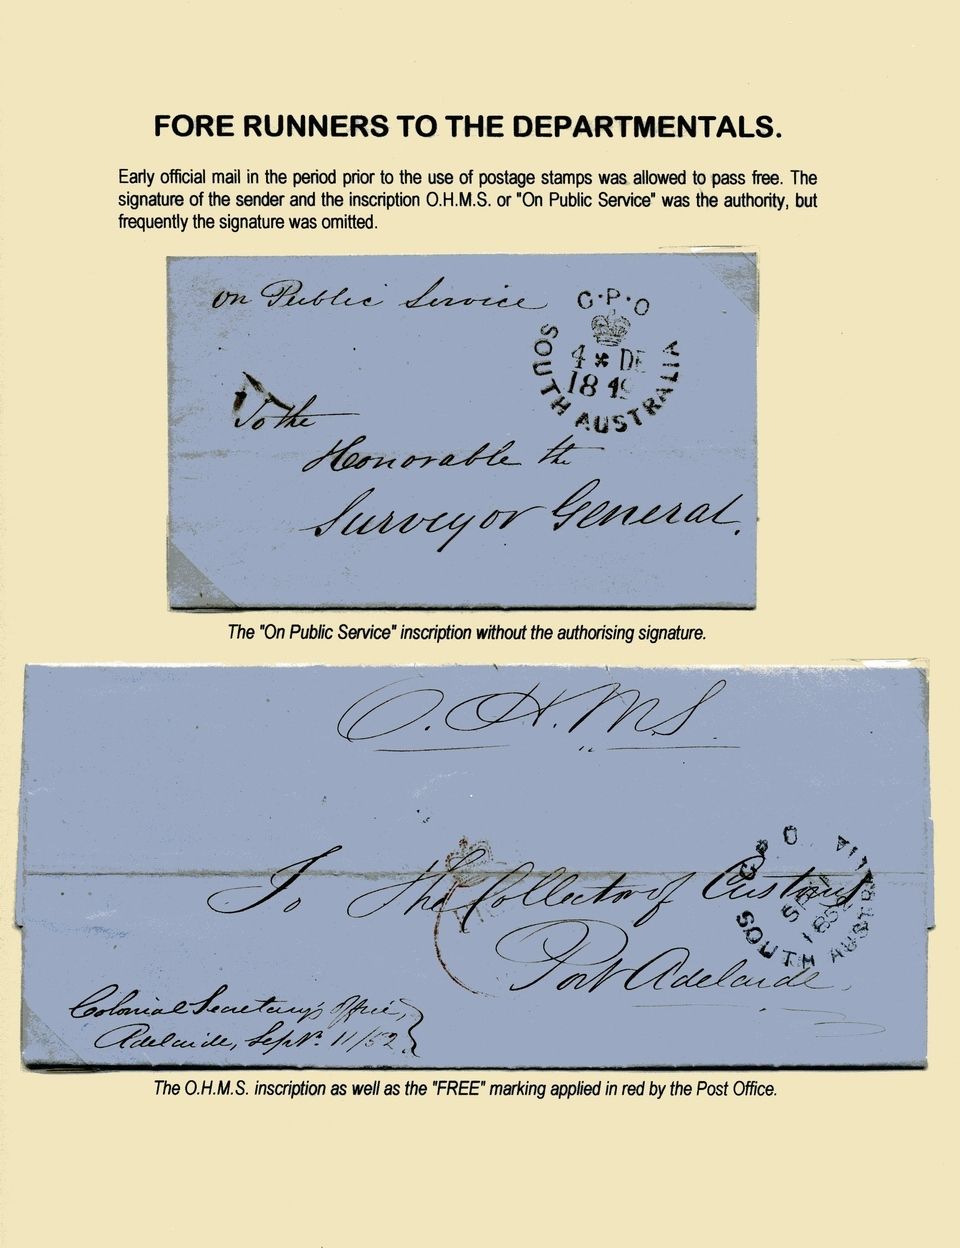 FORE RUNNERS TO THE DEPARTMENTALS.
Early official mail in the period prior to the use of postage stamps was allowed to pass free. The
signature of the sender and the inscription O.H.M.S. or "On Public Service" was the authority, but
frequently the signature was omitted.
on Public Service
G·P·O
4 * DE
1849
SOUTH AUSTRALIA
To the
Honorable the
Surveyor General.
The "On Public Service" inscription without the authorising signature.
O.H.M.S.
To The Collector of Customs
Port Adelaide.
SOUTH AUSTRALIA
Colonial Secretary's Office,
Adelaide, Septr. 11/52
The O.H.M.S. inscription as well as the "FREE" marking applied in red by the Post Office.